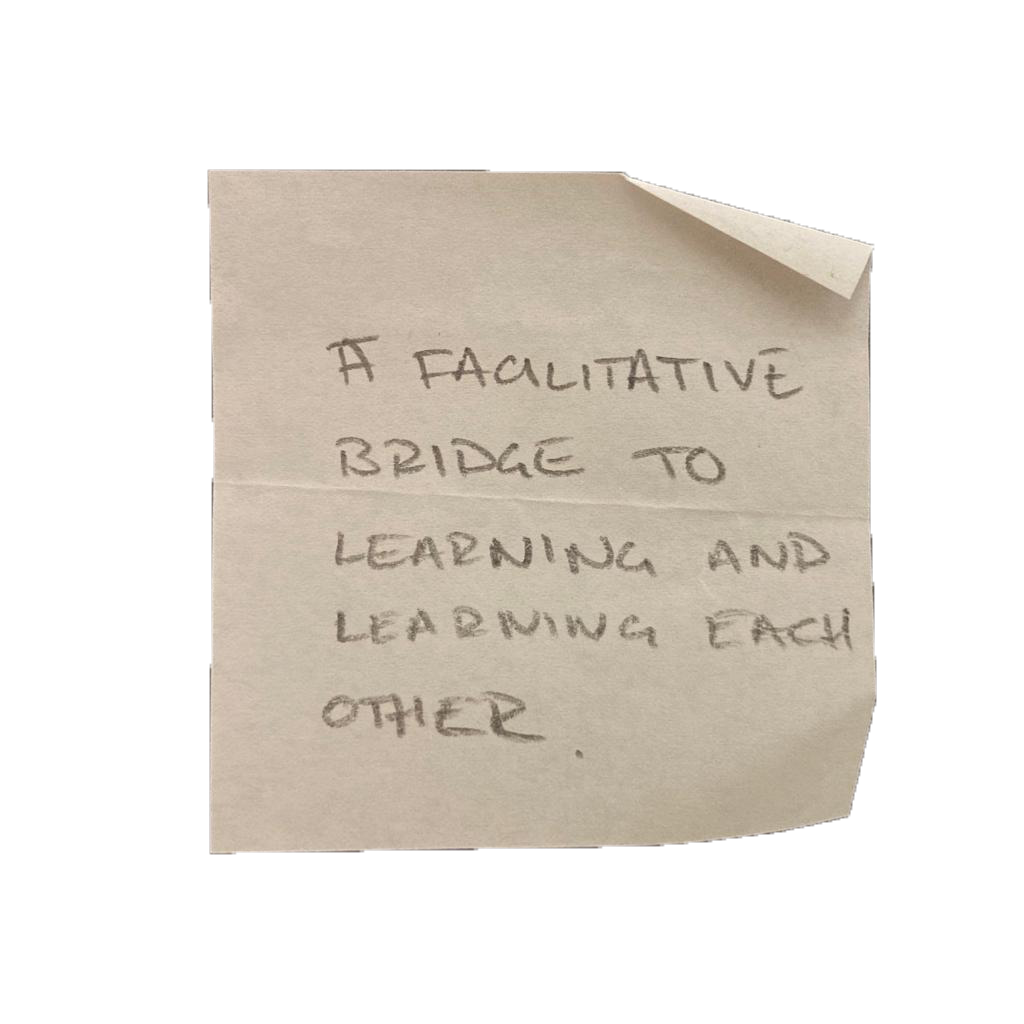 A FACILITATIVE
BRIDGE TO
LEARNING AND
LEARNING EACH
OTHER.